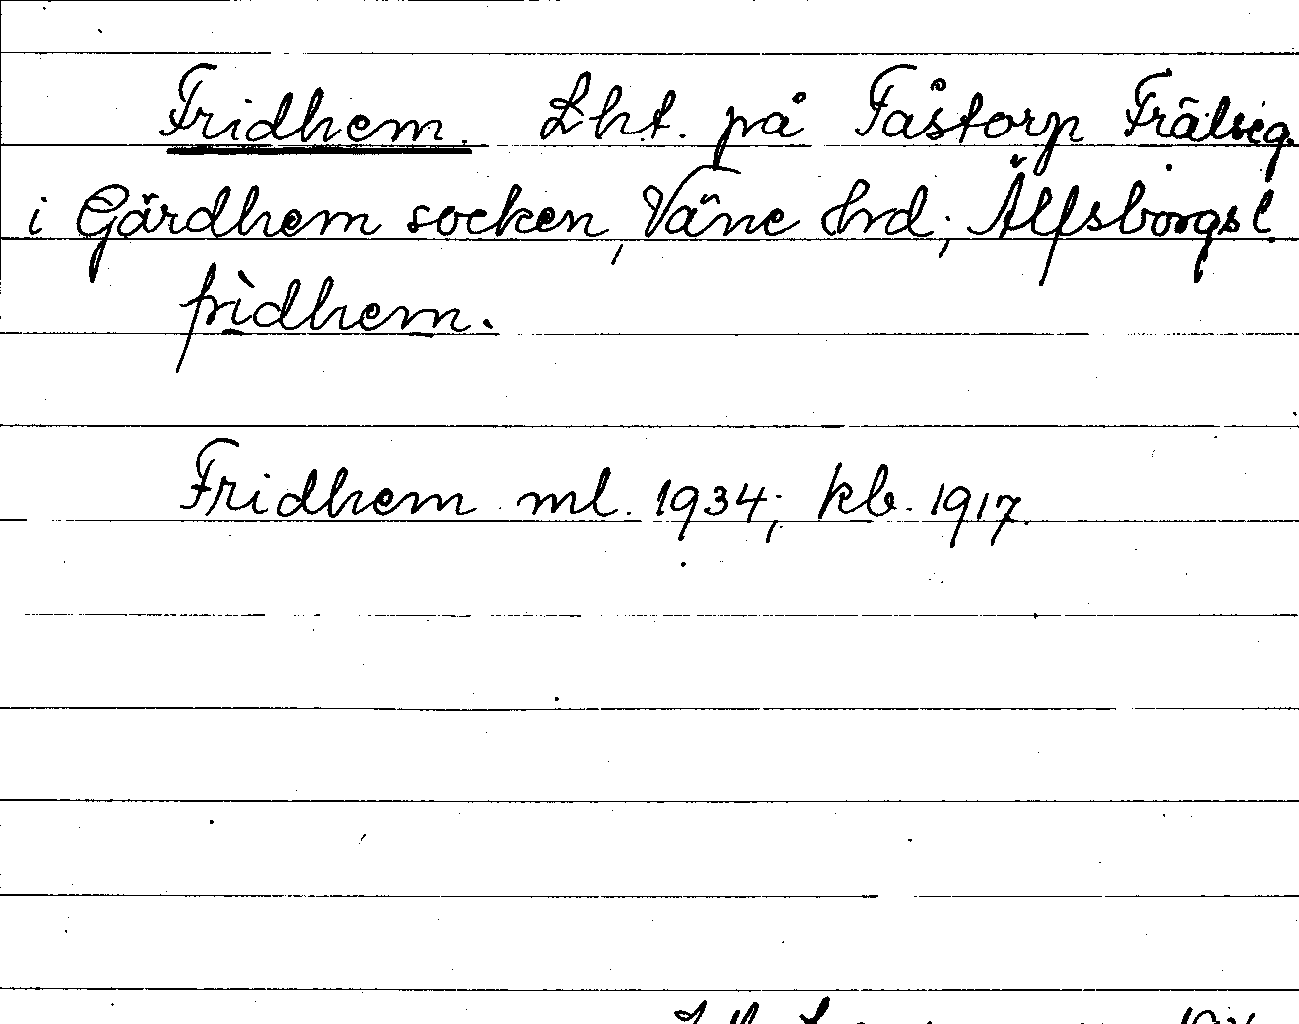 Fridhem. Lht. på Tåstorp Frälseg.
i Gärdhem socken, Väne hrd; Älfsborgs l.
fridhem.
Fridhem ml. 1934; kb. 1917.